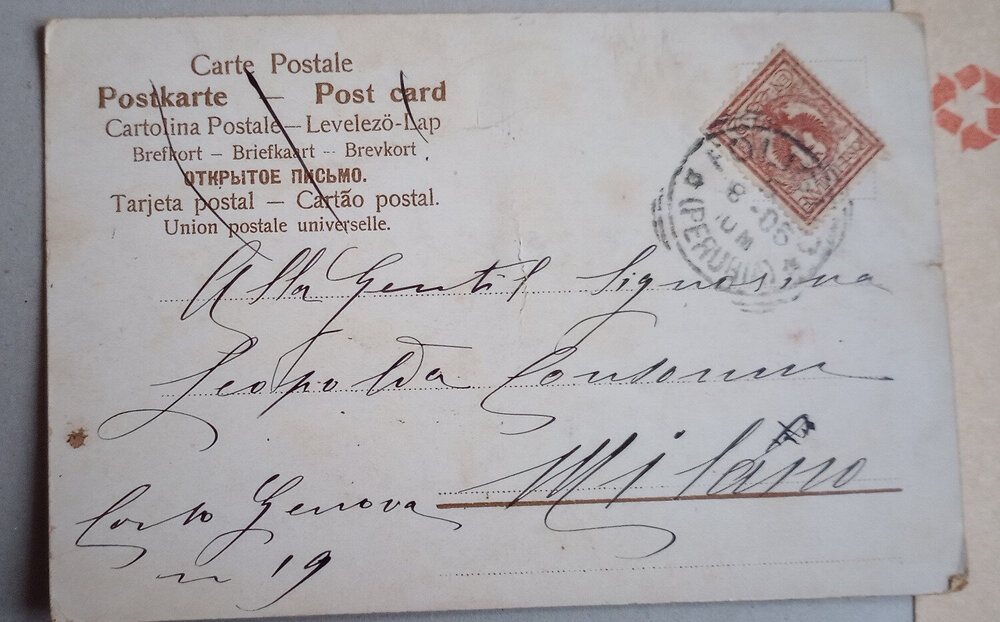 Carte Postale
Postkarte – Post card
Cartolina Postale – Levelezö-Lap
Brefkort – Briefkaart – Brevkort
ОТКРЫТОЕ ПИСЬМО.
Tarjeta postal – Cartão postal.
Union postale universelle.
8 - 05
10 M
(PERUGIA)
Alla Gentil Signorina
Leopolda
Milano
Corso Genova
n 19